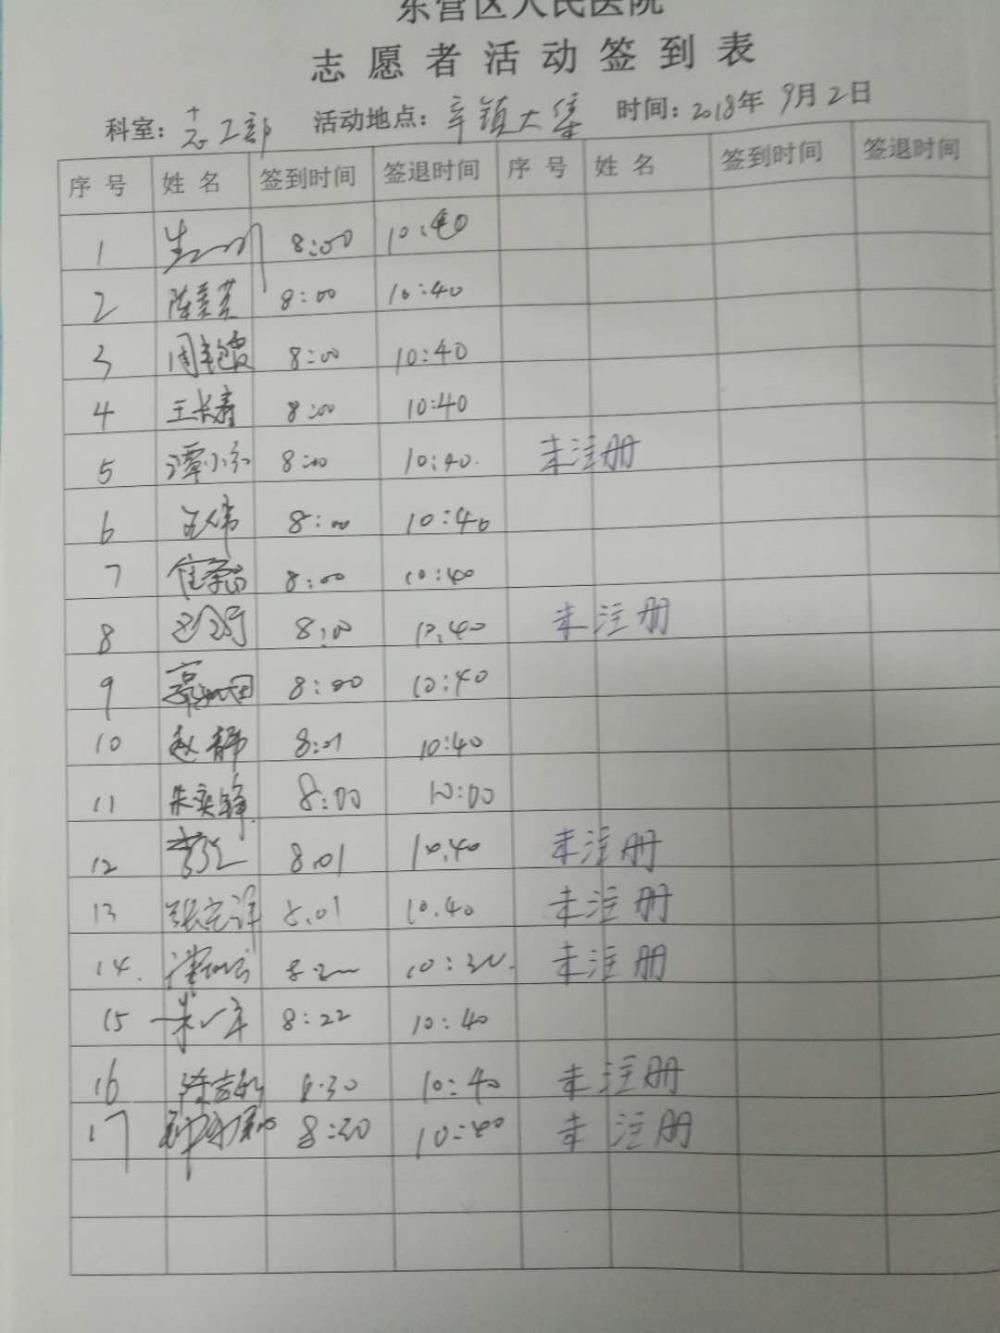 东营区人民医院
志愿者活动签到表
科室: 工部 活动地点: 辛镇大集 时间: 2018年9月2日
序号 姓名 签到时间 签退时间 序号 姓名 签到时间 签退时间
1 8:00 10:40
2 陈美芸 8:00 10:40
3 周艳霞 8:00 10:40
4 王长春 8:00 10:40
5 谭小 8:00 10:40. 未注册
6 8:00 10:40
7 8:00 10:40
8 8:00 10.40 未注册
9 8:00 10:40
10 赵静 8:01 10:40
11 朱奕锋 8:00 10:00
12 8.01 10.40 未注册
13 张 8.01 10.40 未注册
14. 8:2 10:30. 未注册
15 8:22 10:40
16 陈 8.30 10:40 未注册
17 8:30 10:40 未注册